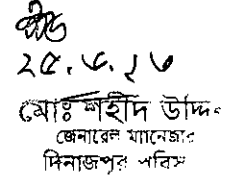 ২৫.৮.১৬
মোঃ শহীদ উদ্দি
জেনারেল ম্যানেজার
দিনাজপুর